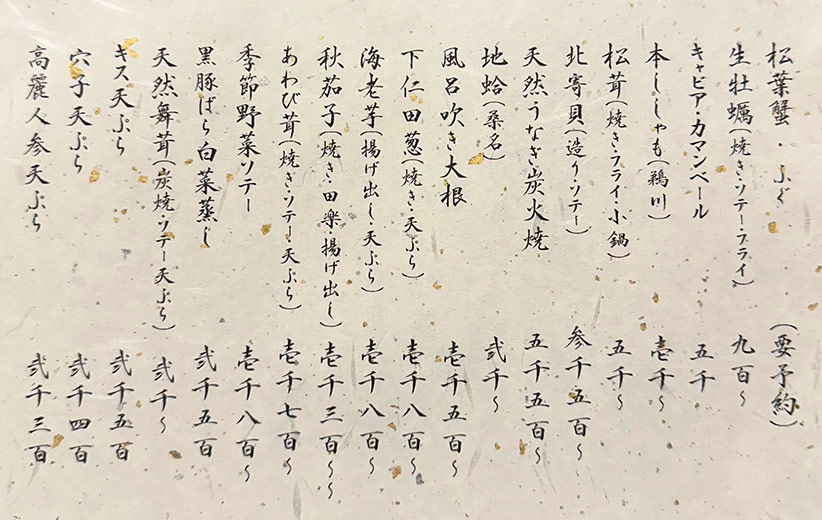 松葉蟹・ふぐ （要予約）
生牡蠣（焼き・ソテー・フライ） 九百〜
キャビア・カマンベール 五千
本ししゃも（鵡川） 壱千〜
松茸（焼き・フライ・小鍋） 五千〜
北寄貝（造り・ソテー） 参千五百〜
天然うなぎ炭火焼 五千五百〜
地蛤（桑名） 弐千〜
風呂吹き大根 壱千五百〜
下仁田葱（焼き・天ぷら） 壱千八百〜
海老芋（揚げ出し・天ぷら） 壱千八百〜
秋茄子（焼き・田楽・揚げ出し） 壱千三百〜
あわび茸（焼き・ソテー・天ぷら） 壱千七百〜
季節野菜ソテー 壱千八百〜
黒豚ばら白菜蒸し 弐千五百〜
天然舞茸（炭焼・ソテー・天ぷら） 弐千〜
キス天ぷら 弐千五百
穴子天ぷら 弐千四百
高麗人参天ぷら 弐千三百